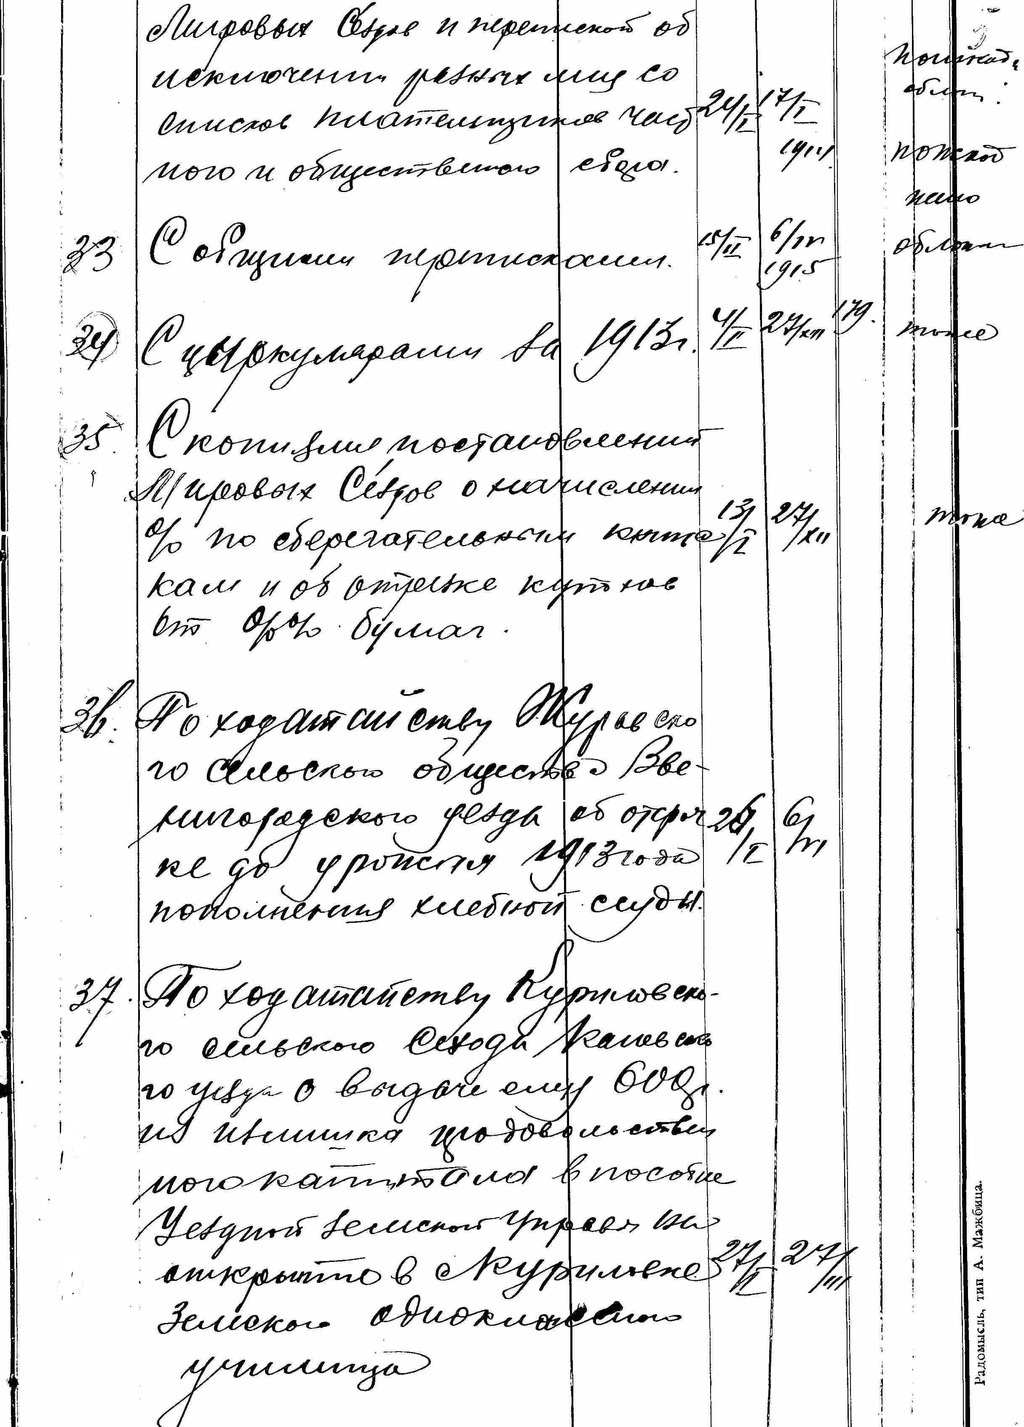 Мировых Съездов и перепиской об
исключении разных лиц со
списков плательщиков част 24/I 17/I
ного и общественного сбора. 1914
33 С общими переписками. 15/II 6/III 1915
34 С циркулярами за 1913 г. 4/II 27/XII 179. тоже
35. С копиями постановлений
Мировых Съездов о начислении
% по сберегательным книж 13/I 27/XII тоже
кам и об отрезке купонов
от %% бумаг.
36. По ходатайству Журавско
го сельского общества Зве-
нигородского уезда об отсроч 26/I 6/VI
ке до урожая 1913 года
пополнения хлебной ссуды.
37. По ходатайству Куриловско-
го сельского Схода Каневско
го уезда о выдаче ему 600 р.
из излишка продовольствен
ного капитала в пособие
Уездной Земской Управы на
открытие в с. Куриловке 27/I 27/III
Земского одноклассного
училища
Радомысль, тип А. Мажбица.